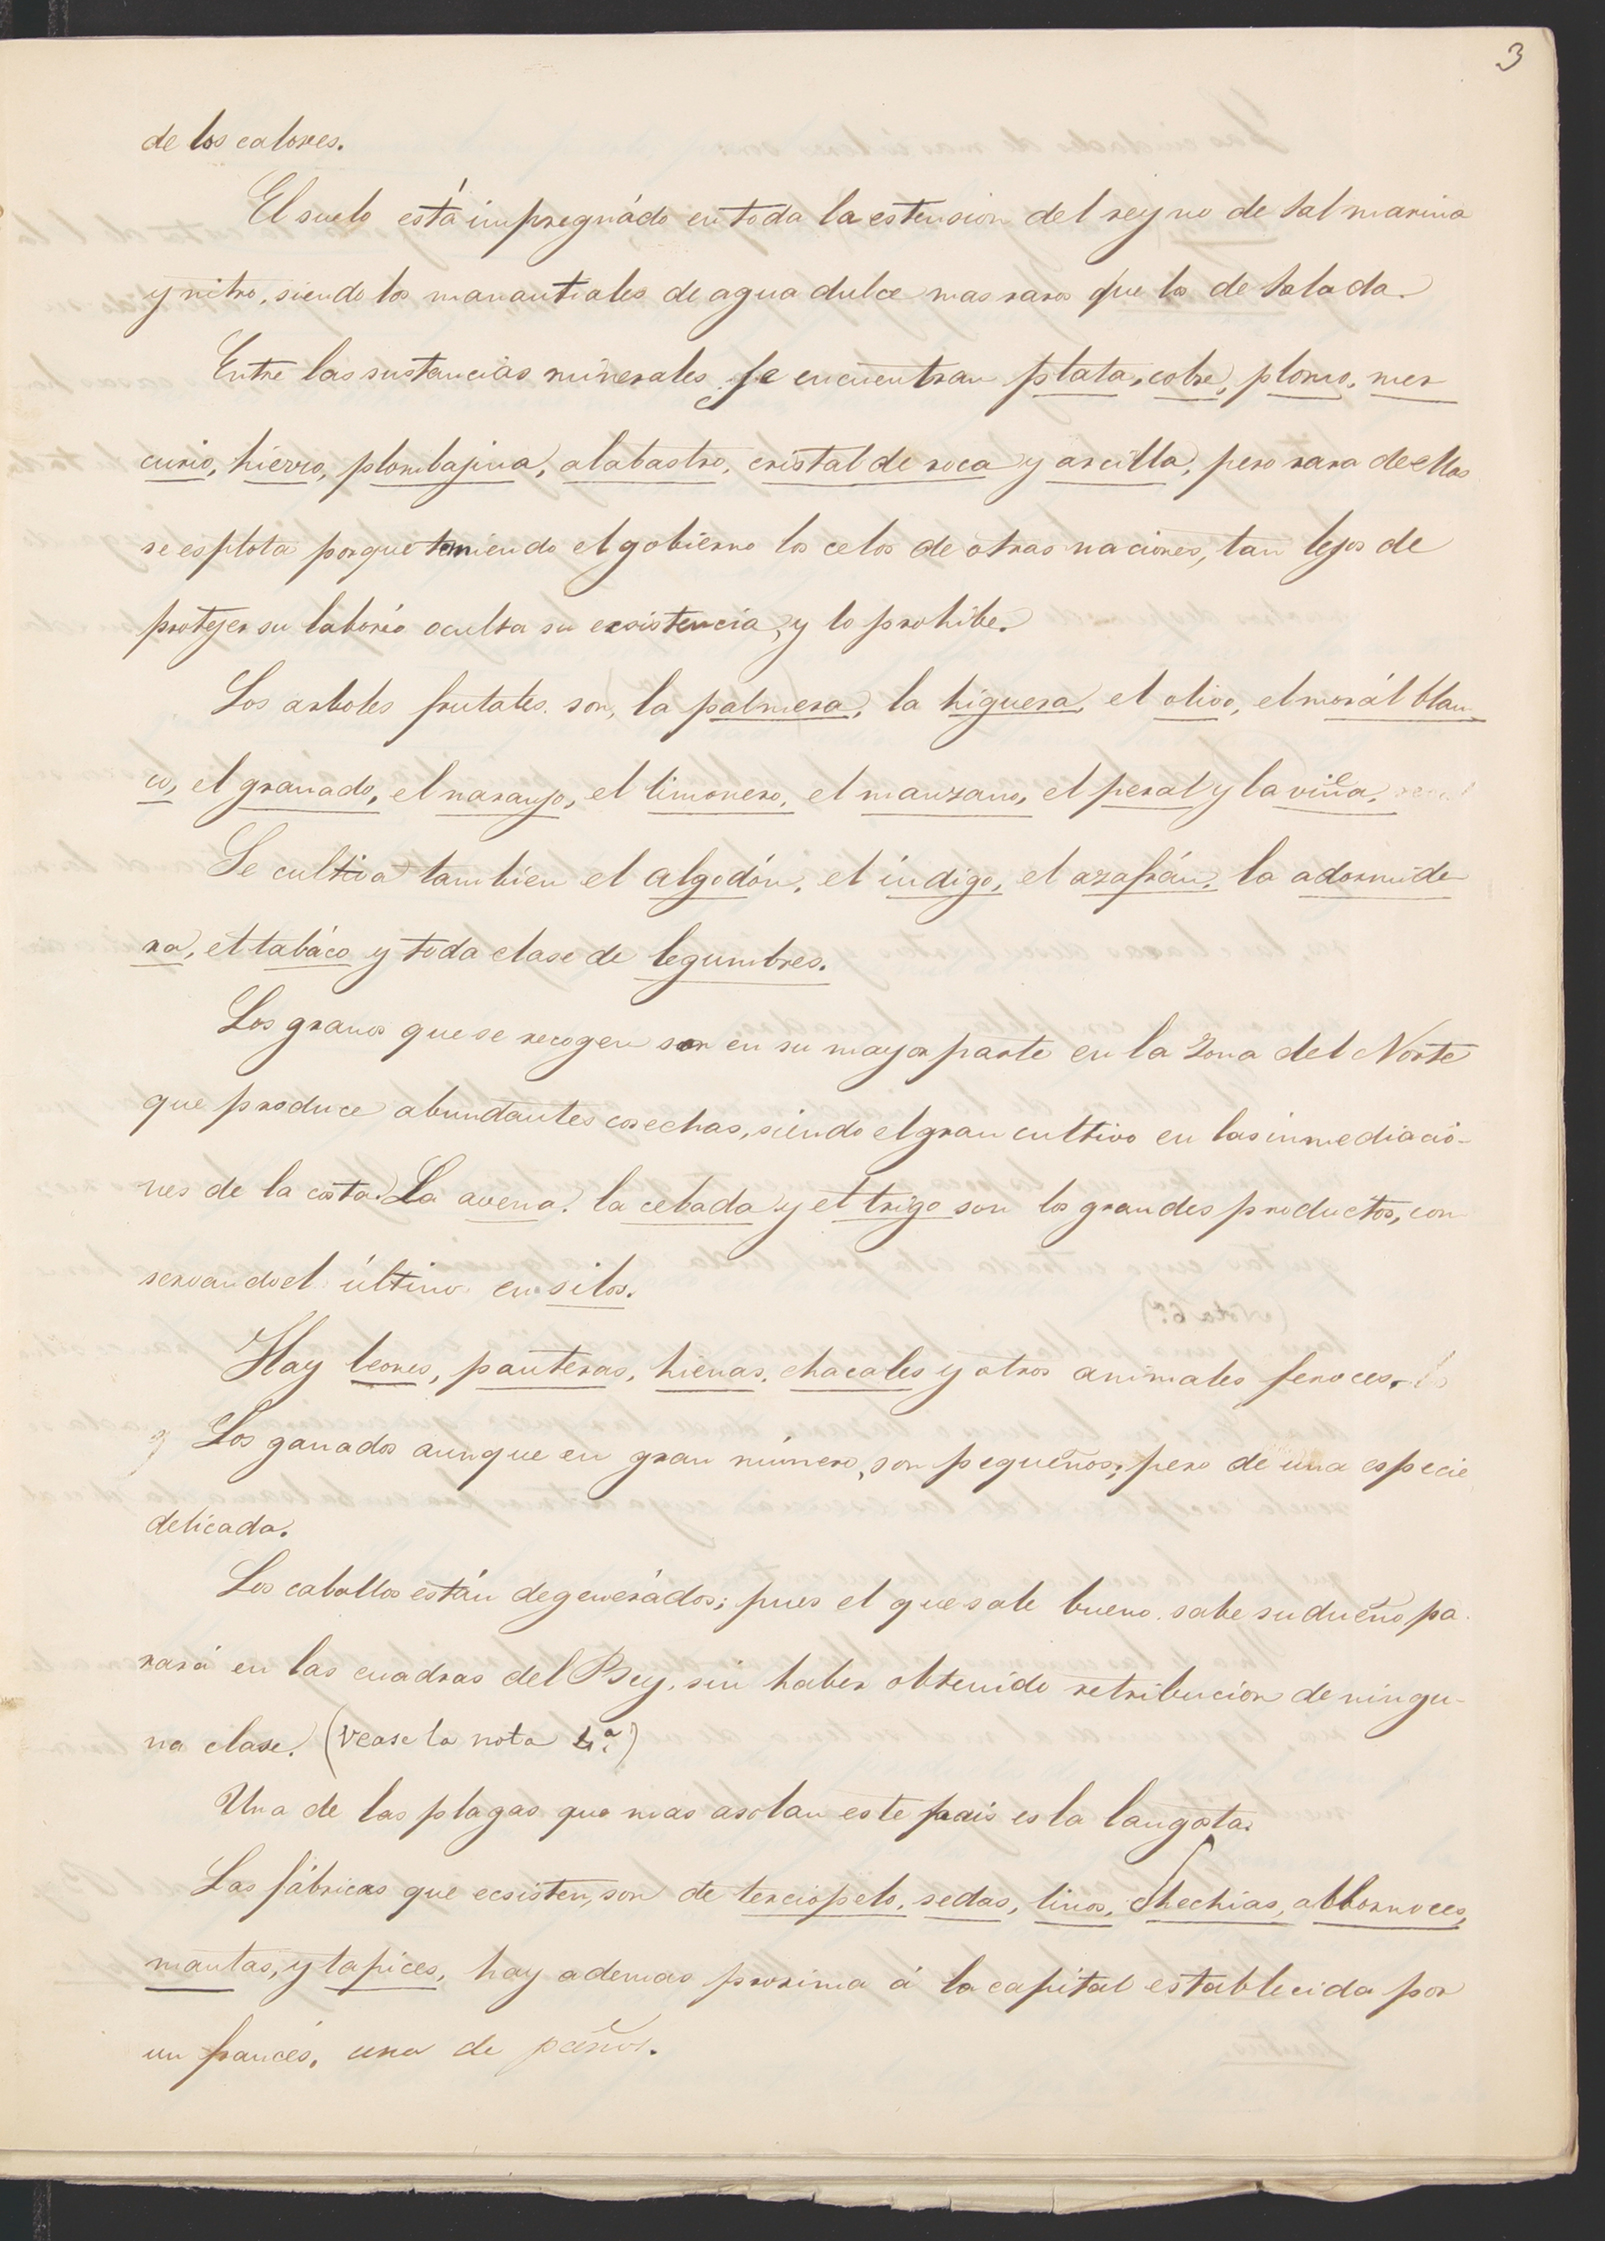 3
de los calores.
El suelo está impregnádo en toda la estension del reyno de sal marina
y nitro, siendo los manantiales de agua dulce mas raros que los de salada.
Entre las sustancias minerales se encuentran plata, cobre, plomo, mer
curio, hierro, plombajina, alabastro, cristal de roca y arcilla, pero rara de ellas
se esplota porque temiendo el gobierno los celos de otras naciones, tan lejos de
protejer su laboréo oculta su ecsistencia, y lo prohibe.
Los arboles frutales son, la palmera, la higuera, el olivo, el morál blan
co, el granado, el naranjo, el limonero, el manzano, el peral y la viña.
Se cultiva tambien el algodón, el índigo, el azafrán, la adormide
ra, el tabáco y toda clase de legumbres.
Los granos que se recogen son en su mayor parte en la Zona del Norte
que produce abundantes cosechas, siendo el gran cultivo en las inmediacio-
nes de la costa. La avena, la cebada y el trigo son los grandes productos, con
servando el último en silos.
Hay leones, panteras, hienas, chacales y otros animales feroces.
Los ganados aunque en gran número, son pequeños; pero de una especie
delicada.
Los caballos están degenerádos; pues el que sale bueno sabe su dueño pa
rará en las cuadras del Bey, sin haber obtenido retribucion de ningu-
na clase. (Vease la nota 4ª.)
Una de las plagas que mas asolan este pais es la langosta.
Las fábricas que ecsisten, son de terciopelo, sedas, linos, Chechias, albornoces,
mantas, y tapices, hay ademas proxima á la capital establecida por
un francés, una de paños.